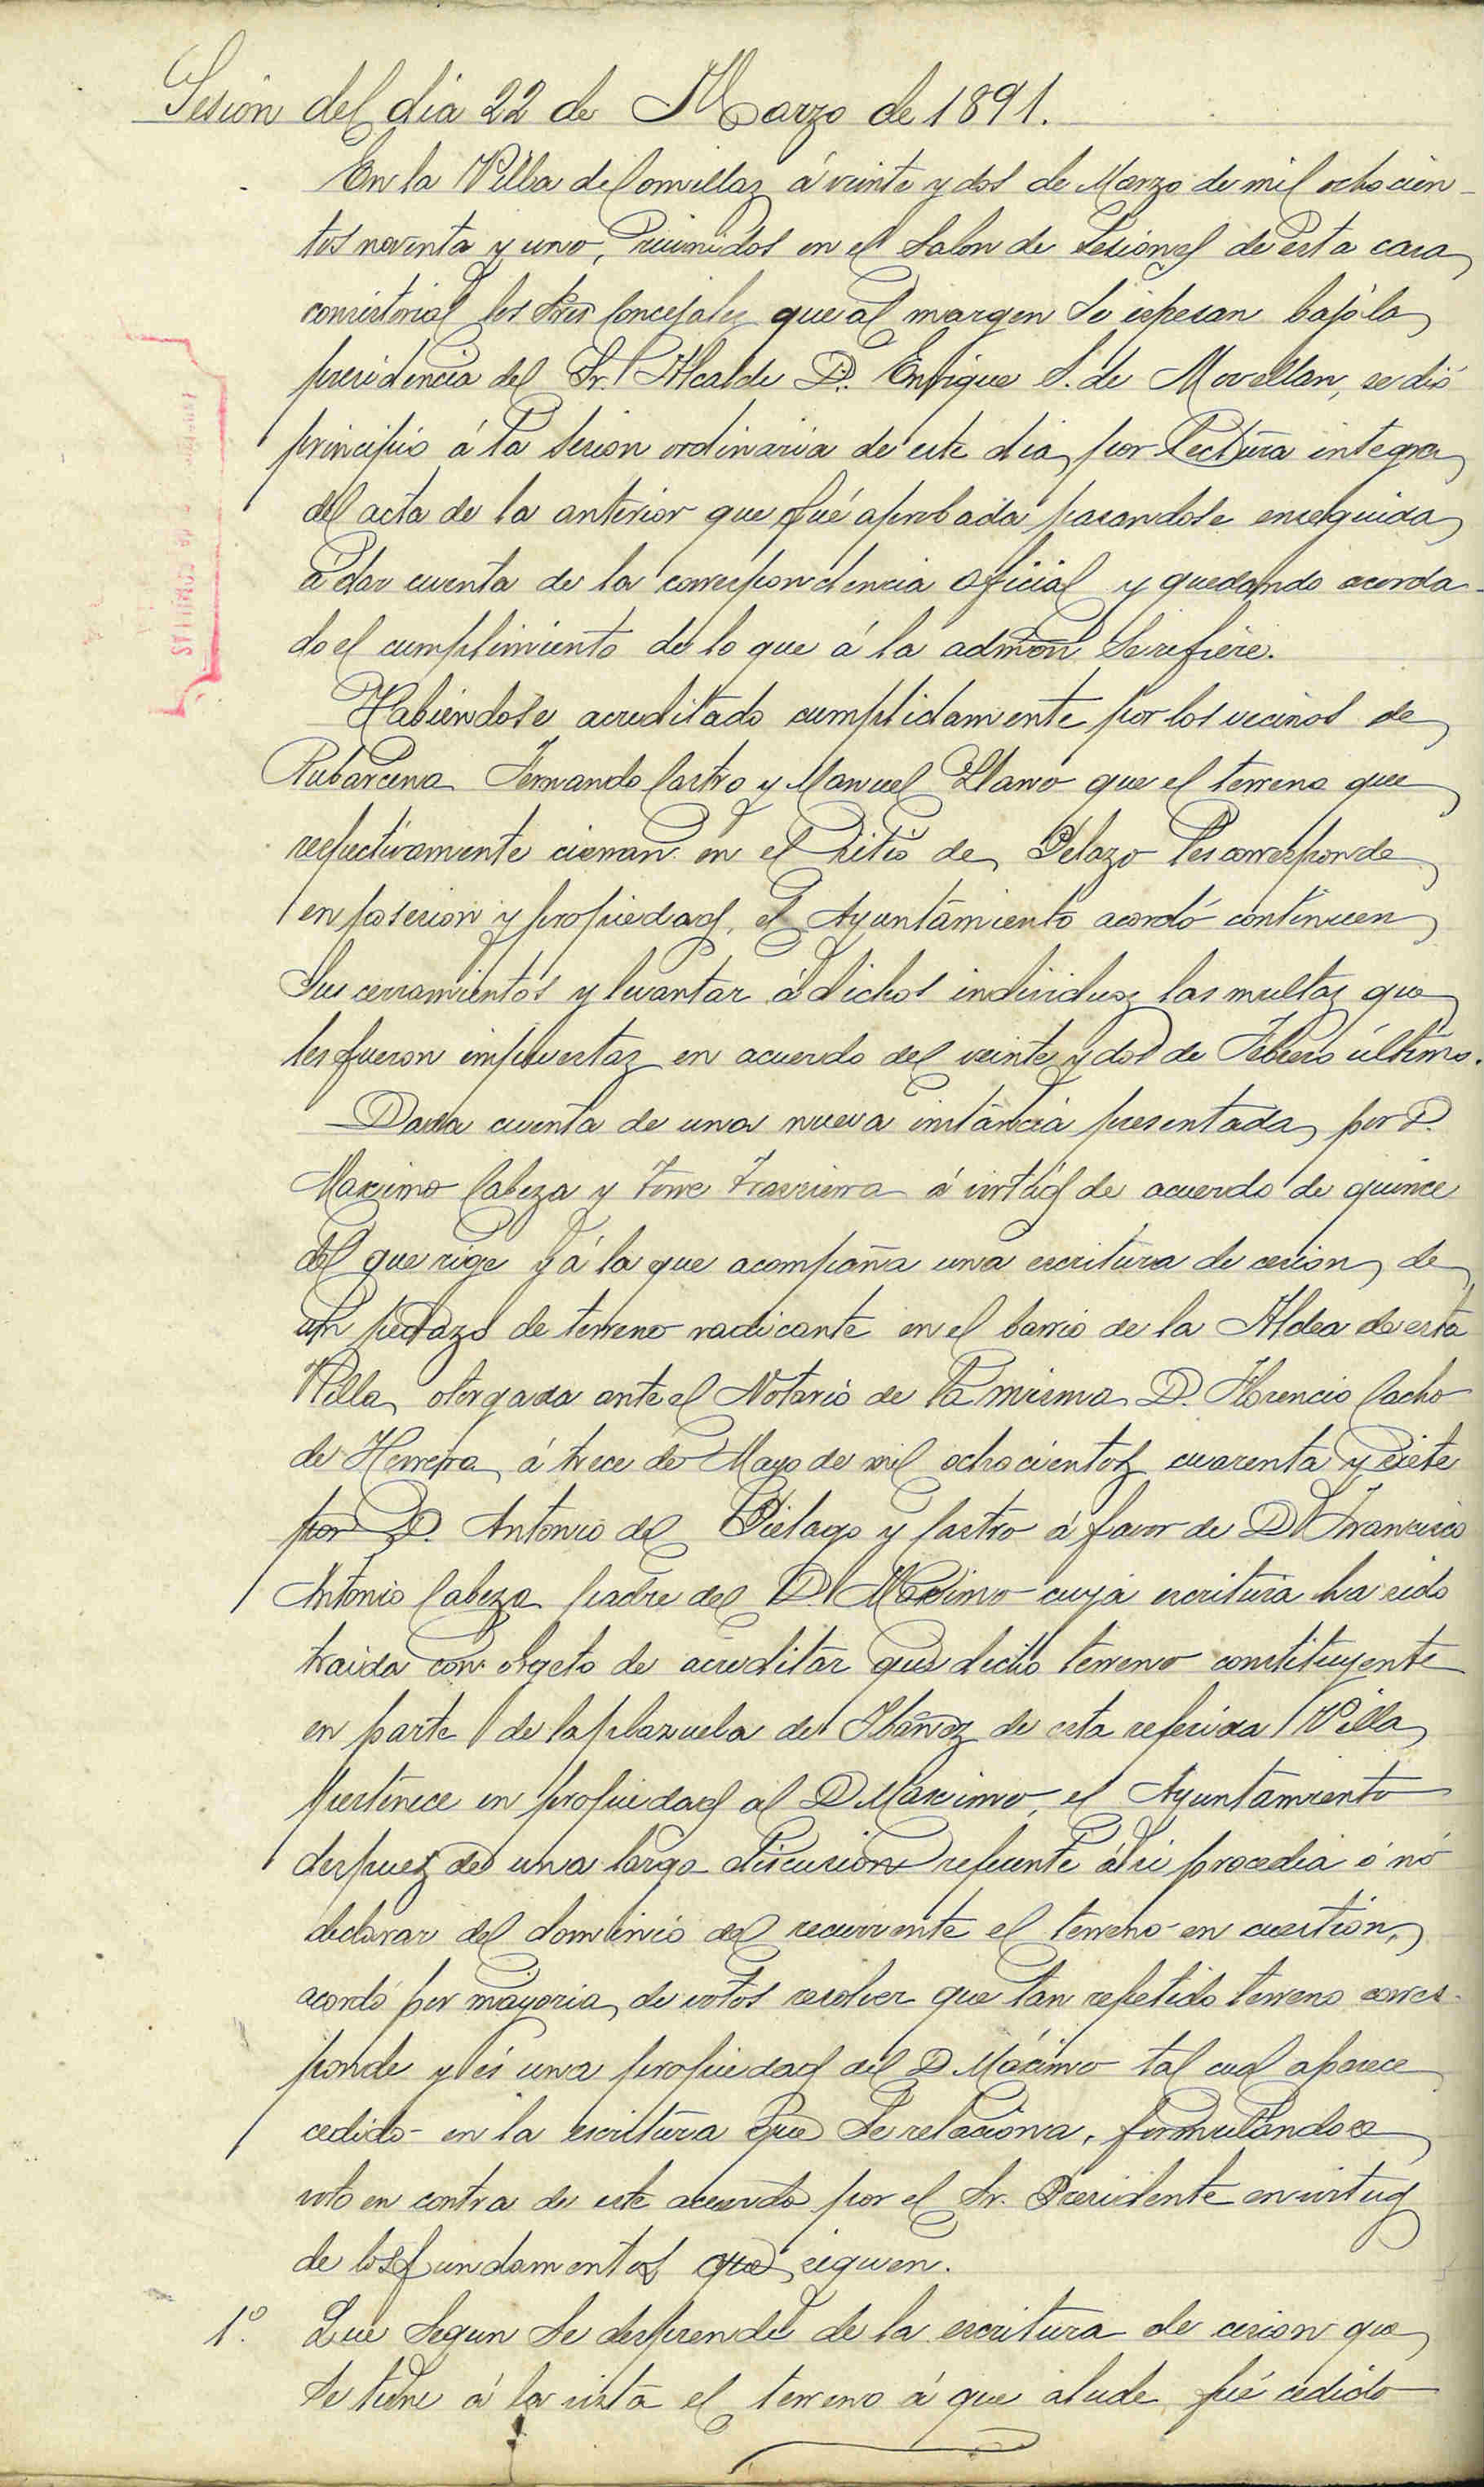 Sesion del dia 22 de Marzo de 1891.
En la Villa de Comillas á veinte y dos de Marzo de mil ochocien-
tos noventa y uno, reunidos en el Salon de Sesiones de esta casa
consistorial los Sres Concejales que al margen se espesan bajo la
presidencia del Sr. Alcalde D. Enrique S. de Movellan, se dió
principio á la Sesion ordinaria de este dia por lectura integra
del acta de la anterior que fué aprobada pasandose enseguida
a dar cuenta de la correspondencia oficial y quedando acorda-
do el cumplimiento de lo que á la admon se refiere.
Habiendose acreditado cumplidamente por los vecinos de
Rubarcena Fernando Castro y Manuel Llano que el terreno que
respectivamente cierran en el sitio de Pelazo les corresponde
en posesion y propiedad, el Ayuntamiento acordó continuen
sus cerramientos y levantar á dichos individuos las multas que
les fueron impuestas en acuerdo del veinte y dos de Febrero último.
Dada cuenta de una nueva instancia presentada por D.
Maximo Cabeza y Torre Trassierra á virtud de acuerdo de quince
del que rige y á la que acompaña una escritura de cesion de
un pedazo de terreno radicante en el barrio de la Aldea de esta
Villa otorgada ante el Notario de la misma D. Florencio Cacho
de Herrera á trece de Mayo de mil ochocientos cuarenta y siete
por D. Antonio del Piélago y Castro á favor de D. Francisco
Antonio Cabeza padre del D. Maximo cuya escritura ha sido
traida con objeto de acreditar que dicho terreno constituyente
en parte de la plazuela de Ibáñez de esta referida Villa
pertenece en propiedad al D Maximo, el Ayuntamiento
despues de una larga discusion referente á si procedia ó nó
declarar del dominio del recurrente el terreno en cuestion,
acordó por mayoria de votos resolver que tan repetido terreno corres-
ponde y és una propiedad del D Máximo tal cual aparece
cedido en la escritura que se relaciona, formulandose
voto en contra de este acuerdo por el Sr. Presidente en virtud
de los fundamentos que siguen.
1º. Que segun se desprende de la escritura de cesion que
se tiene á la vista el terreno á que alude fué cedido
COMILLAS